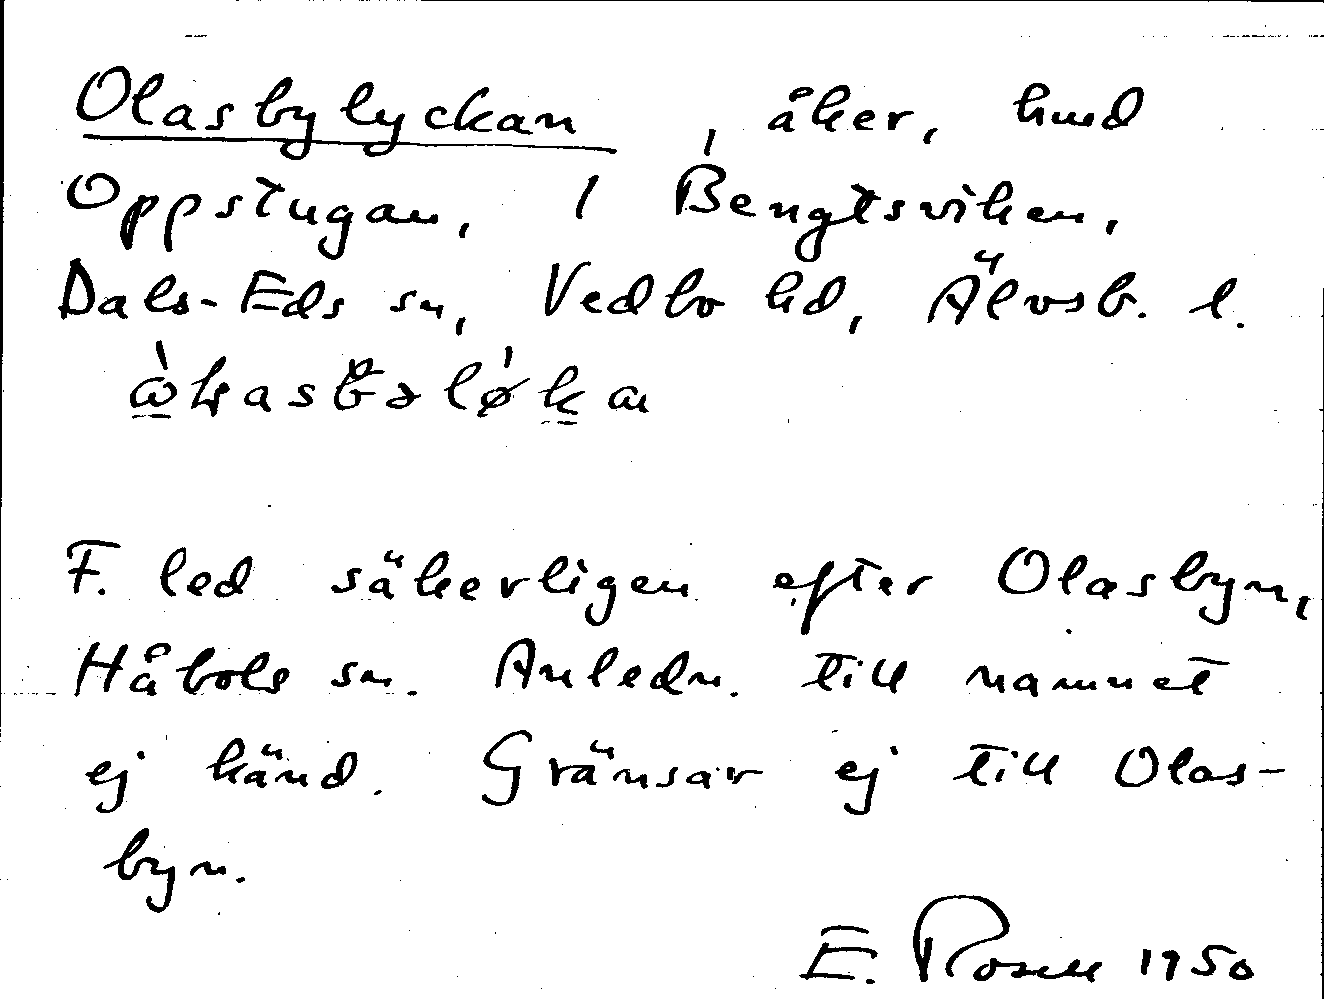 Olasbylyckan, åker, hmd
Oppstugan, 1 Bengtsviken,
Dals-Eds sn, Vedbo hd, Älvsb. l.
F. led säkerligen efter Olasbyn,
Håbols sn. Anledn. till namnet
ej känd. Gränsar ej till Olas-
byn.
E. Rosell 1950